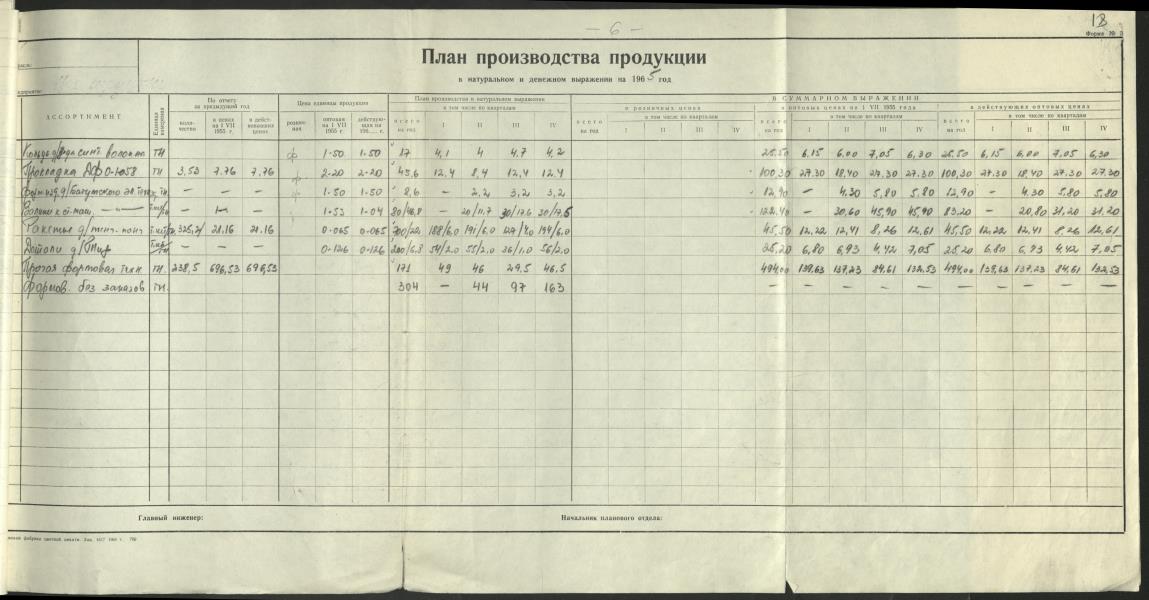 — 6 —
18
Форма № 2
План производства продукции
в натуральном и денежном выражении на 1965 год
АССОРТИМЕНТ
Единица измерения
По отчету за предыдущий год
коли- чество
в ценах на 1 VII 1955 г.
в дейст- вовавших ценах
Цена единицы продукции
рознич- ная
оптовая на 1 VII 1955 г.
действую- щая на 196.... г.
План производства в натуральном выражении
всего на год
в том числе по кварталам
I II III IV
В СУММАРНОМ ВЫРАЖЕНИИ
в розничных ценах
всего на год
в том числе по кварталам
I II III IV
в оптовых ценах на 1 VII 1955 года
всего на год
в том числе по кварталам
I II III IV
в действующих оптовых ценах
всего на год
в том числе по кварталам
I II III IV
тн ф 1-50 1-50 17 4,1 4 4.7 4,2 25.50 6,15 6,00 7,05 6,30 25.50 6,15 6,00 7,05 6,30
Прокладка тн 3,53 7.76 7,76 ф 2-20 2-20 45,6 12,4 8,4 12,4 12,4 100,30 27.30 18,40 27,30 27,30 100,30 27.30 18,40 27.30 27.30
тн. — — — ф 1-50 1-50 8,6 — 2,2 3,2 3,2 12,90 — 4.30 5,80 5,80 12,90 — 4.30 5,80 5,80
— — — 1-53 1-04 — 20/11,7 30/17.6 30/17,5 122,40 — 30,60 45,90 45,90 83,20 — 20,80 31,20 31,20
21.16 21.16 0-065 0-065 188/6,0 191/6.0 194/6,0 45,50 12,22 12,41 8,26 12,61 45,50 12,22 12,41 8,26 12,61
— — — 0-126 0-126 200/6.8 54/2.0 55/2,0 36/1,0 56/2.0 25,20 6,80 6,93 4,42 7,05 25,20 6,80 6,93 4,42 7,05
Прочая тн. 238,5 696,53 696,53 171 49 46 29,5 46,5 494,00 139,63 137,23 84,61 132,53 494,00 139,63 137,23 84,61 132,53
без заказов тн. 304 — 44 97 163 — — — — — — — — — —
Главный инженер:
Начальник планового отдела: